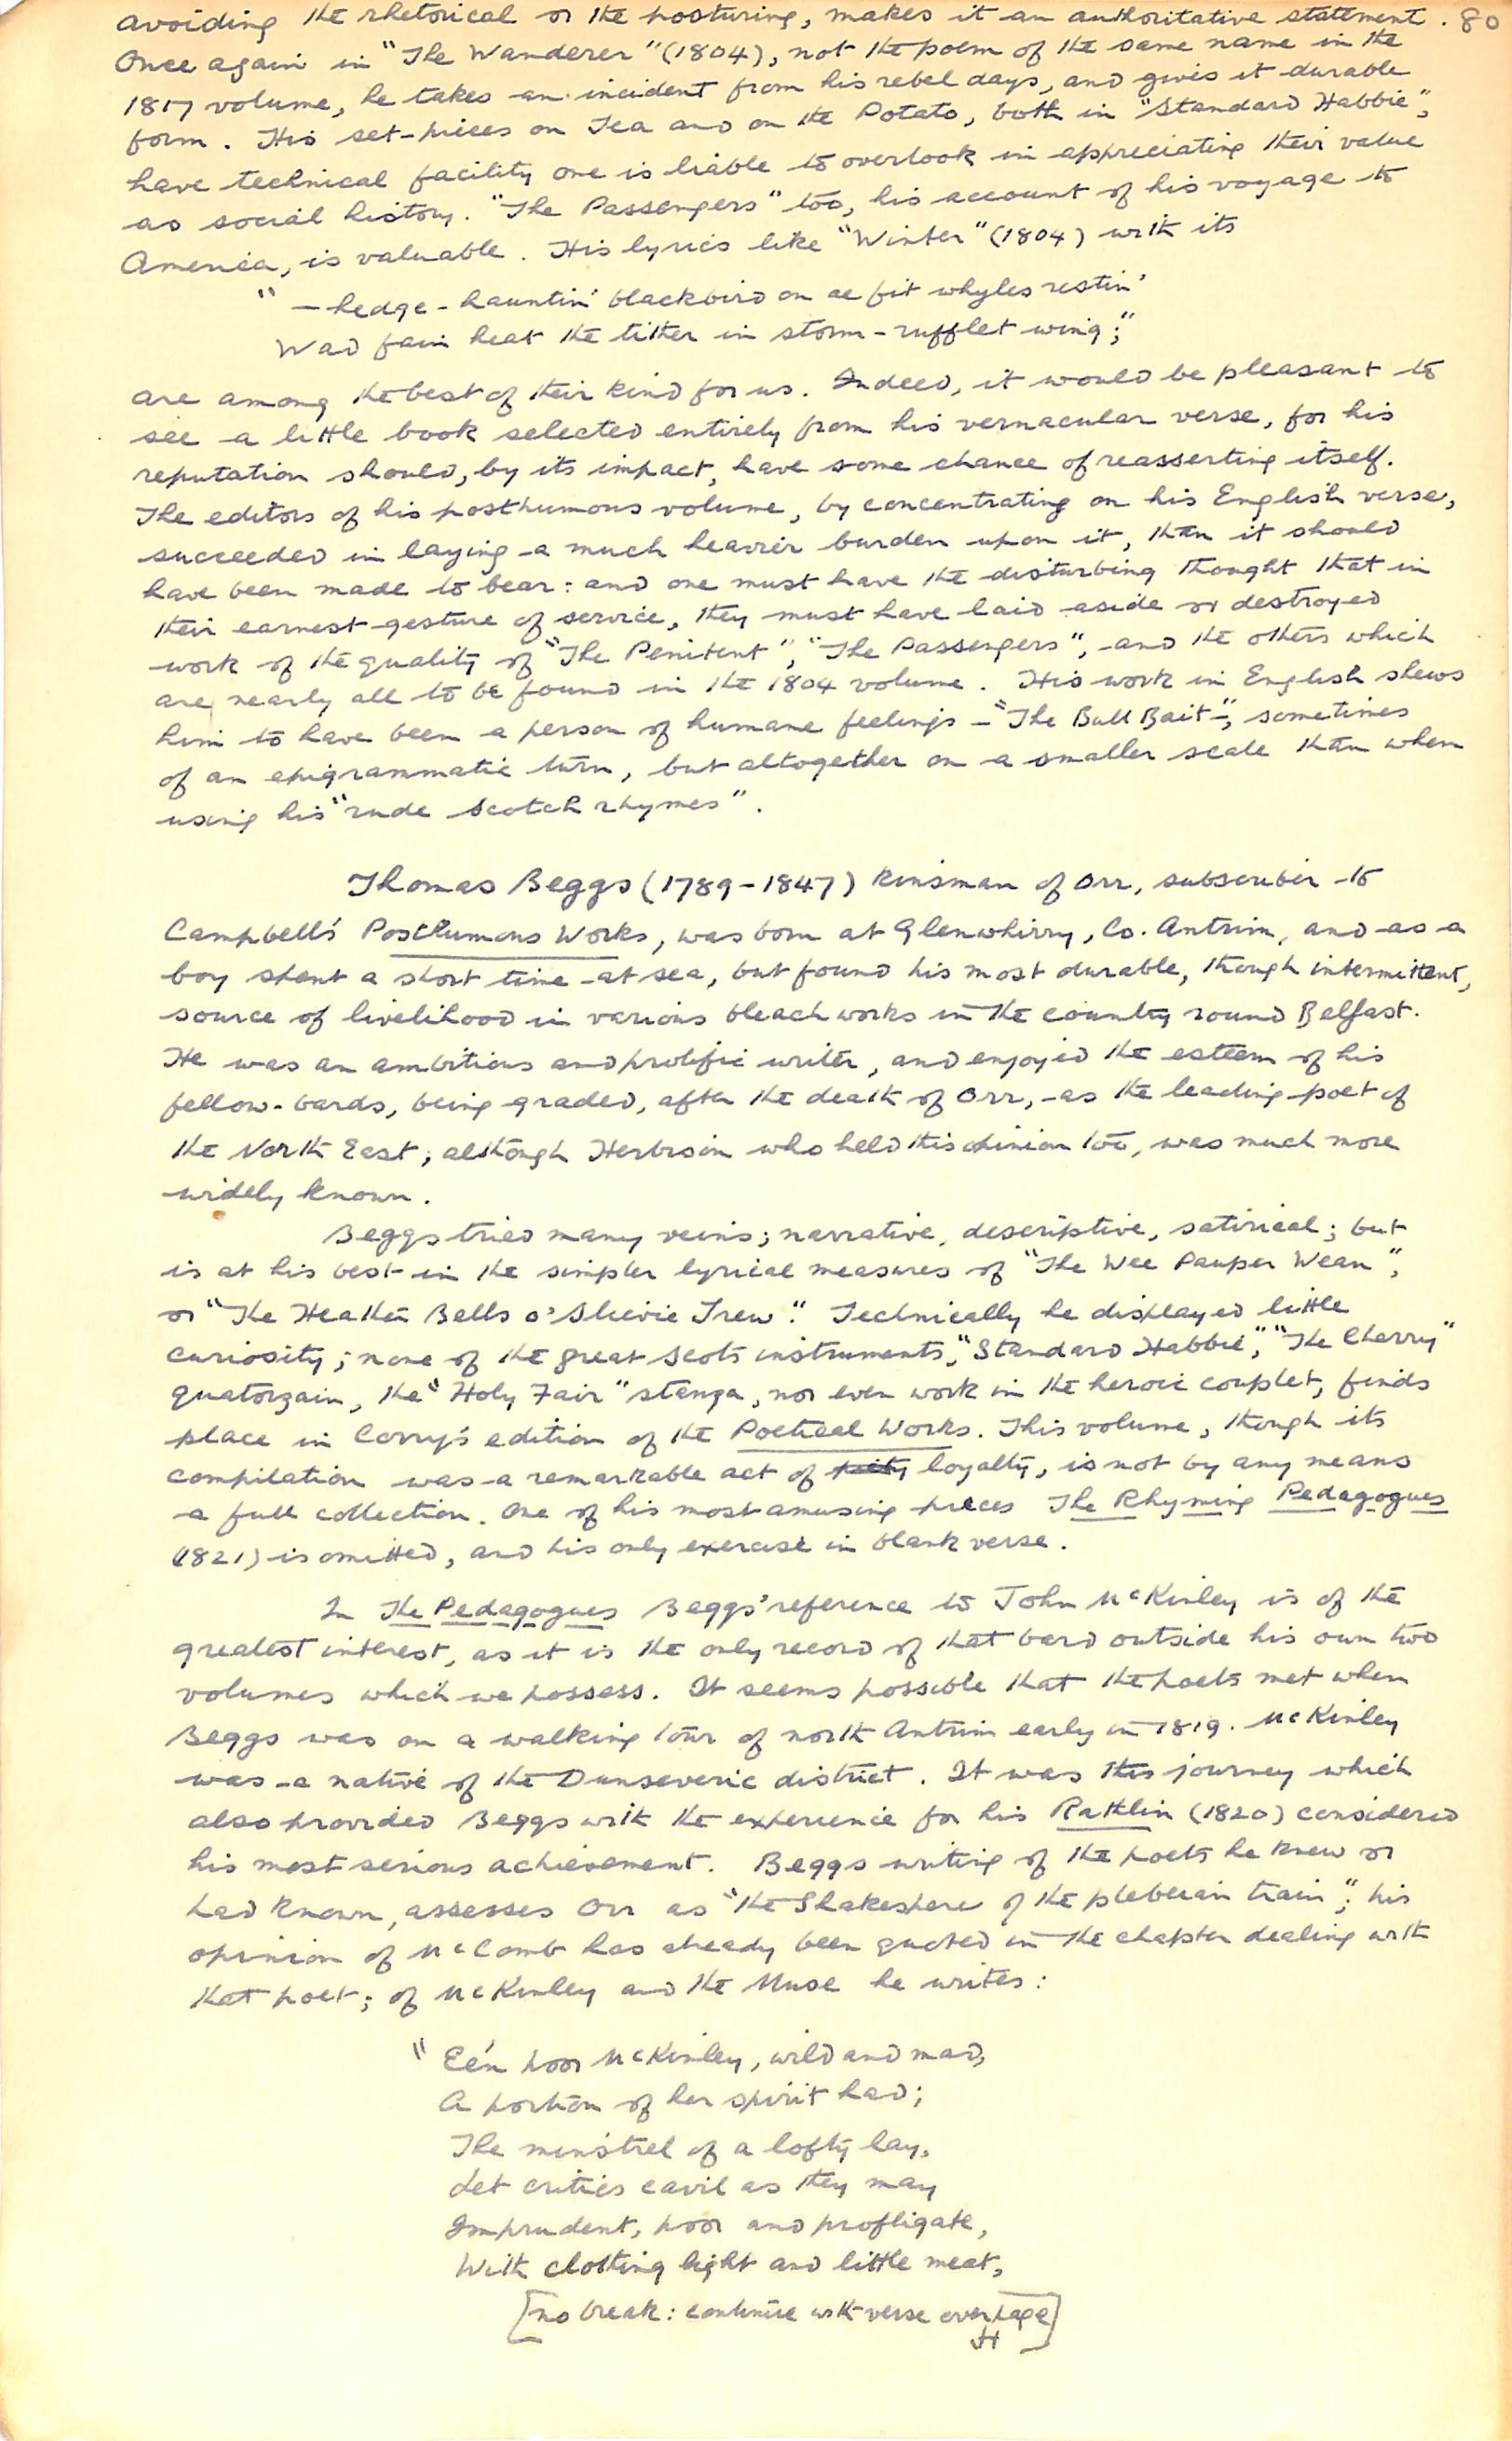 avoiding the rhetorical or the posturing, makes it an authoritative statement. 80
Once again in "The Wanderer" (1804), not the poem of the same name in the
1817 volume, he takes an incident from his rebel days, and gives it durable
form. His set-pieces on Tea and on the Potato, both in "Standard Habbie",
have technical facility one is liable to overlook in appreciating their value
as social history. "The Passengers" too, his account of his voyage to
America, is valuable. His lyrics like "Winter" (1804) with its
"—hedge-hauntin' blackbird on ae fit whyles restin'
Wad fain heat the tither in storm-rufflet wing;"
are among the best of their kind for us. Indeed, it would be pleasant to
see a little book selected entirely from his vernacular verse, for his
reputation should, by its impact, have some chance of reasserting itself.
The editors of his posthumous volume, by concentrating on his English verse,
succeeded in laying a much heavier burden upon it, than it should
have been made to bear: and one must have the disturbing thought that in
their earnest gesture of service, they must have laid aside or destroyed
work of the quality of "The Penitent", "The Passengers", and the others which
are nearly all to be found in the 1804 volume. His work in English shews
him to have been a person of humane feelings – "The Bull Bait", sometimes
of an epigrammatic turn, but altogether on a smaller scale than when
using his "rude Scotch rhymes".
Thomas Beggs (1789-1847) kinsman of Orr, subscriber to
Campbell's Posthumous Works, was born at Glenwhirry, Co. Antrim, and as a
boy spent a short time at sea, but found his most durable, though intermittent,
source of livelihood in various bleachworks in the country round Belfast.
He was an ambitious and prolific writer, and enjoyed the esteem of his
fellow-bards, being graded, after the death of Orr, as the leading poet of
the North East; although Herbison who held this opinion too, was much more
widely known.
Beggs tried many veins; narrative, descriptive, satirical; but
is at his best in the simpler lyrical measures of "The Wee Pauper Wean",
or "The Heather Bells o' Slievie Trew". Technically he displayed little
curiosity; none of the great Scots instruments, "Standard Habbie", "The Cherry"
quatorzain, the "Holy Fair" stanza, nor even work in the heroic couplet, finds
place in Corry's edition of the Poetical Works. This volume, though its
compilation was a remarkable act of piety loyalty, is not by any means
a full collection. One of his most amusing pieces The Rhyming Pedagogues
(1821) is omitted, and his only exercise in blank verse.
In The Pedagogues Beggs' reference to John McKinley is of the
greatest interest, as it is the only record of that bard outside his own two
volumes which we possess. It seems possible that the poets met when
Beggs was on a walking tour of north Antrim early in 1819. McKinley
was a native of the Dunseveric district. It was this journey which
also provided Beggs with the experience for his Rathlin (1820) considered
his most serious achievement. Beggs writing of the poets he knew or
had known, assesses Orr as "the Shakespere of the plebeian train"; his
opinion of McComb has already been quoted in the chapter dealing with
that poet; of McKinley and the Muse he writes:
"E'en poor McKinley, wild and mad,
A portion of her spirit had;
The minstrel of a lofty lay,
Let critics cavil as they may
Imprudent, poor and profligate,
With clothing light and little meat,
[no break: continue with verse overpage]
JH